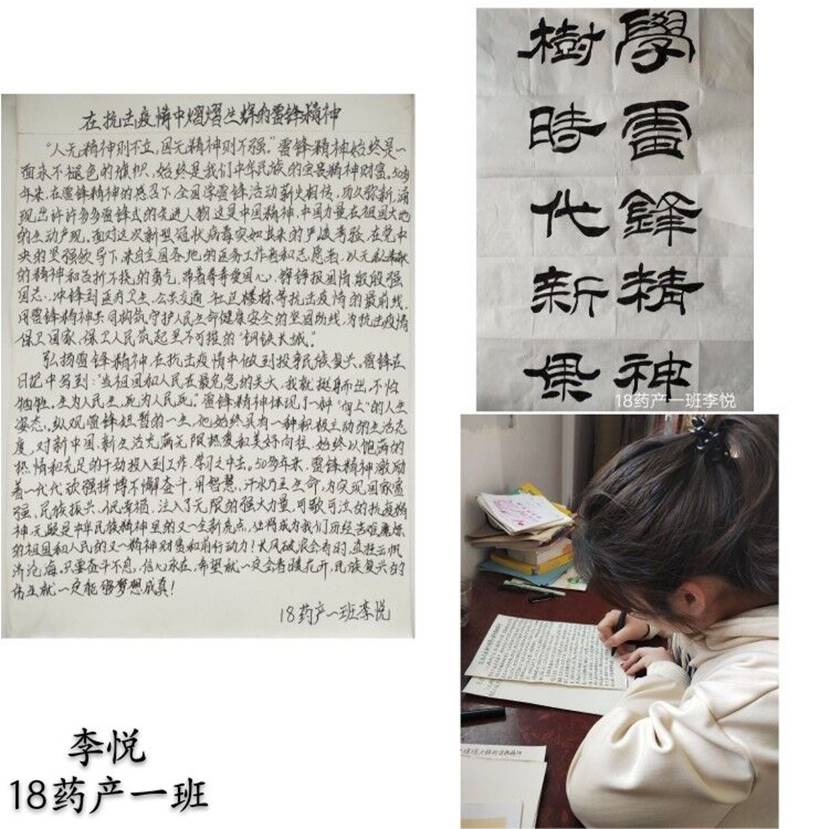 在抗击疫情中熠熠生辉的雷锋精神
"人无精神则不立,国无精神则不强。"雷锋精神始终是一
面永不褪色的旗帜,始终是我们中华民族的宝贵精神财富。50多
年来,在雷锋精神的感召下,全国学雷锋活动薪火相传,历久弥新,涌
现出许许多多雷锋式的先进人物,这是中国精神,中国力量在祖国大地
的生动展现。面对这次新型冠状病毒突如其来的严峻考验,在党中
央的坚强领导下,来自全国各地的医务工作者和志愿者,以无私奉献
的精神和百折不挠的勇气,带着尊尊爱国心、铮铮报国情殷殷强
国志,冲锋到医疗卫生、公共交通、社区楼栋等抗击疫情的最前线,
用雷锋精神共同构筑守护人民生命健康安全的坚固防线,为抗击疫情
保卫国家、保卫人民筑起坚不可摧的"钢铁长城"。
弘扬雷锋精神在抗击疫情中做到投身民族复兴。雷锋在
日记中写到:"当祖国和人民在最危急的关头,我就挺身而出,不怕
牺牲。生为人民生,死为人民死。"雷锋精神体现了一种"向上"的人生
姿态。纵观雷锋短暂的一生,他始终具有一种积极主动的生活态
度,对新中国、新生活充满无限热爱和美好向往,始终以饱满的
热情和充足的干劲投入到工作、学习之中去。50多年来,雷锋精神激励
着一代代顽强拼搏不懈奋斗,用智慧、汗水乃至生命,为实现国家富
强、民族振兴、人民幸福,注入了无限的强大力量,可歌可泣的抗疫精
神无疑是中华民族精神里的又一全新亮点,必将成为我们历经苦难磨炼
的祖国和人民的又一精神财富和前行动力!长风破浪会有时,直挂云帆
济沧海。只要奋斗不息,信心永在,希望就一定会春暖花开,民族复兴的
伟业就一定能够梦想成真!
18药产一班李悦
學雷鋒精神
樹時代新
18药产一班李悦
李悦
18药产一班